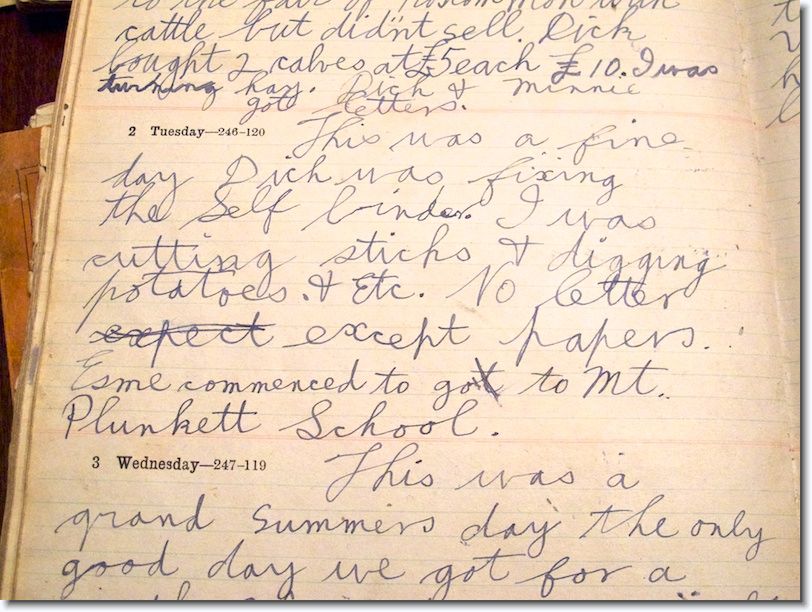 to the fair of Roscommon with
cattle but didn't sell. Dick
bought 2 calves at £5 each £10. I was
turning hay. Dick & Minnie
got letters.
2 Tuesday—246-120 This was a fine
day Dick was fixing
the Self binder. I was
cutting sticks & digging
potatoes. & Etc. No letter
expect except papers.
Esme commenced to got to Mt.
Plunkett School.
3 Wednesday—247-119 This was a
grand Summers day the only
good day we got for a